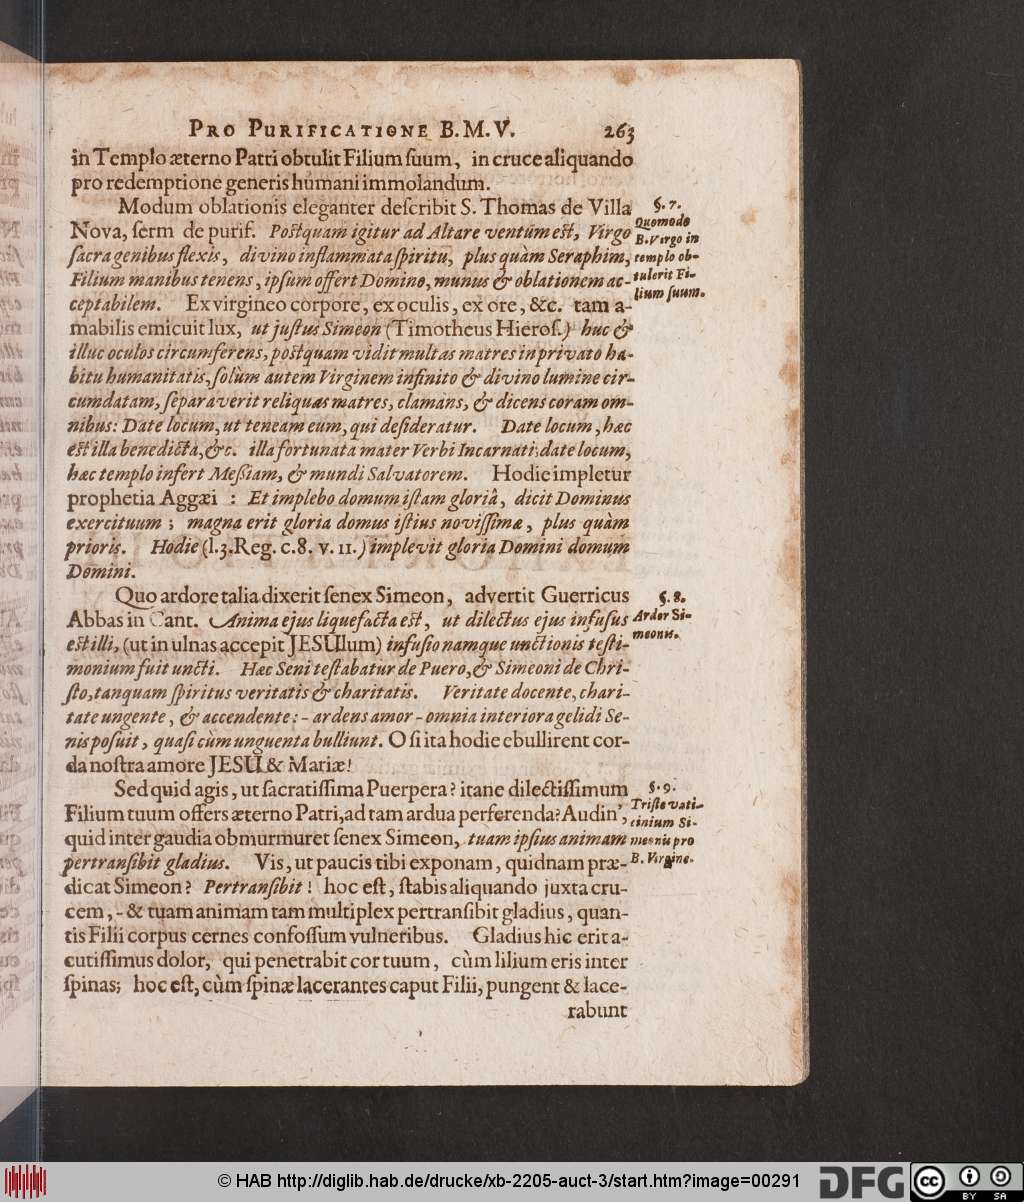 PRO PURIFICATIONE B. M. V. 263
in Templo æterno Patri obtulit Filium ſuum, in cruce aliquando
pro redemptione generis humani immolandum.
Modum oblationis eleganter deſcribit S. Thomas de Villa
Nova, ſerm de purif. Poſtquam igitur ad Altare ventum eſt, Virgo
ſacra genibus flexis, divino inflammata ſpiritu, plus quàm Seraphim,
Filium manibus tenens, ipſum offert Domino, munus & oblationem ac-
ceptabilem. Ex virgineo corpore, ex oculis, ex ore, &c. tam a-
mabilis emicuit lux, ut juſtus Simeon (Timotheus Hieroſ.) huc &
illuc oculos circumferens, poſtquam vidit multas matres in privato ha-
bitu humanitatis, ſolùm autem Virginem infinito & divino lumine cir-
cumdatam, ſeparaverit reliquas matres, clamans, & dicens coram om-
nibus: Date locum, ut teneam eum, qui deſideratur. Date locum, hæc
eſt illa benedicta, &c. illa fortunata mater Verbi Incarnati: date locum,
hæc templo infert Meſſiam, & mundi Salvatorem. Hodie impletur
prophetia Aggæi : Et implebo domum iſtam gloriâ, dicit Dominus
exercituum ; magna erit gloria domus iſtius noviſſimæ, plus quàm
prioris. Hodie (l. 3. Reg. c. 8. v. 11.) implevit gloria Domini domum
Domini.
§. 7.
Quomodo
B. Virgo in
templo ob-
tulerit Fi-
lium ſuum.
Quo ardore talia dixerit ſenex Simeon, advertit Guerricus
Abbas in Cant. Anima ejus liquefacta eſt, ut dilectus ejus infuſus
eſt illi, (ut in ulnas accepit JESUlum) infuſio namque unctionis teſti-
monium fuit uncti. Hæc Seni teſtabatur de Puero, & Simeoni de Chri-
ſto, tanquam ſpiritus veritatis & charitatis. Veritate docente, chari-
tate ungente, & accendente: - ardens amor - omnia interiora gelidi Se-
nis poſuit, quaſi cùm unguenta bulliunt. O ſi ita hodie ebullirent cor-
da noſtra amore JESU & Mariæ!
§. 8.
Ardor Si-
meonis.
Sed quid agis, ut ſacratiſſima Puerpera? itane dilectiſſimum
Filium tuum offers æterno Patri, ad tam ardua perferenda? Audin',
quid inter gaudia obmurmuret ſenex Simeon, tuam ipſius animam
pertranſibit gladius. Vis, ut paucis tibi exponam, quidnam præ-
dicat Simeon? Pertranſibit! hoc eſt, ſtabis aliquando juxta cru-
cem, - & tuam animam tam multiplex pertranſibit gladius, quan-
tis Filii corpus cernes confoſſum vulneribus. Gladius hic erit a-
cutiſſimus dolor, qui penetrabit cor tuum, cùm lilium eris inter
ſpinas; hoc eſt, cùm ſpinæ lacerantes caput Filii, pungent & lace-
rabunt
§. 9.
Triſte vati-
cinium Si-
meonis pro
B. Virgine.
© HAB http://diglib.hab.de/drucke/xb-2205-auct-3/start.htm?image=00291
DFG
CC BY SA